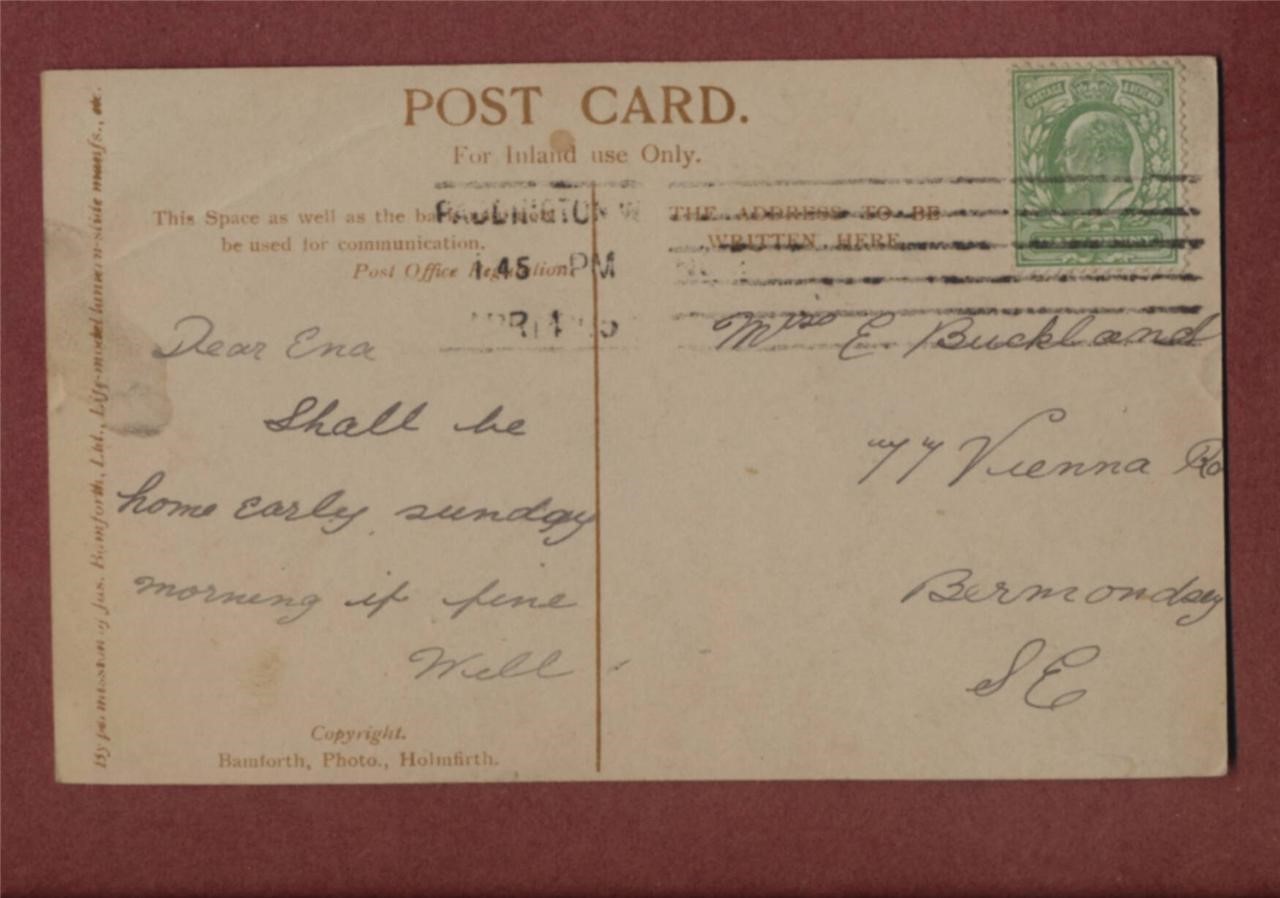 POST CARD.
For Inland use Only.
This Space as well as the back
be used for communication.
Post Office Regulation.
THE ADDRESS TO BE
WRITTEN HERE
PADDINGTON W
1.45 PM
APR
POSTAGE & REVENUE
Dear Ena
Shall be
home early sunday
morning if fine
Will
E Buckland
77 Vienna Ro
Bermondsey
S E
Copyright.
Bamforth, Photo., Holmfirth.
By permission of Jas. Bamforth, Ltd., Life-model lantern-slide manfs., etc.